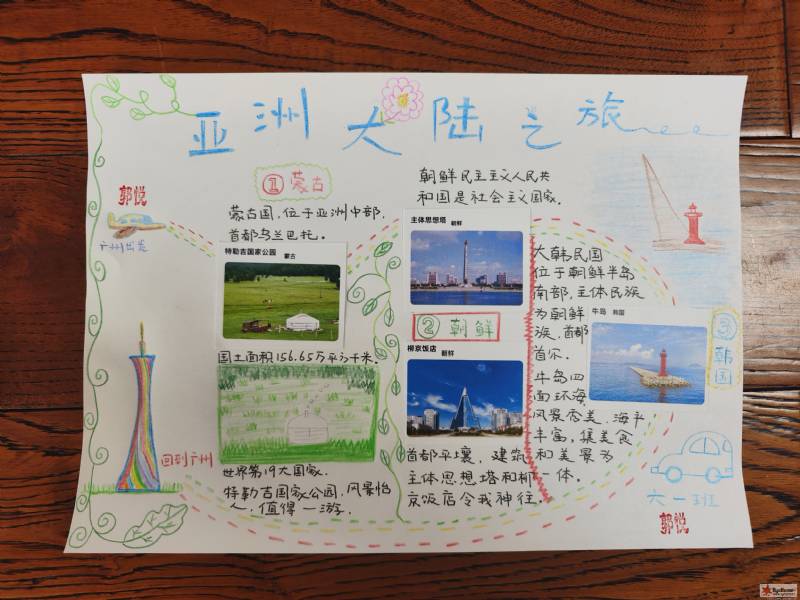 亚洲大陆之旅
郭悦
广州出发
①蒙古
蒙古国,位于亚洲中部,
首都乌兰巴托。
特勒吉国家公园 蒙古
国土面积156.65万平方千米.
世界第19大国家.
特勒吉国家公园,风景怡
人,值得一游.
回到广州
朝鲜民主主义人民共
和国是社会主义国家.
主体思想塔 朝鲜
②朝鲜
柳京饭店 朝鲜
首都平壤,建筑
主体思想塔和柳
京饭店令我神往.
大韩民国
位于朝鲜半岛
南部,主体民族
为朝鲜
族,首都
首尔.
牛岛四
面环海,
风景秀美,海平
丰富,集美食
和美景为
一体.
牛岛 韩国
③韩国
六一班
郭悦